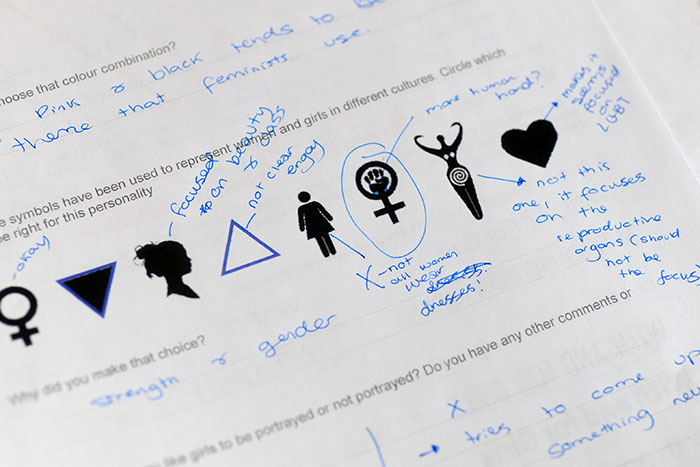 hoose that colour combination?
Pink & black tends to be
theme that feminists use.
e symbols have been used to represent women and girls in different cultures. Circle which
be right for this personality
okay
focused
on beauty
& class
not clear
enogy
X-not
all women
wear
dresses!
more human
hand?
not this
one, it focuses
on the
reproductive
organs (should
not be
the focus)
makes it
seems
focused
on
LGBT
Why did you make that choice?
strength & gender
like girls to be portrayed or not portrayed? Do you have any other comments or
X
→ tries to come up
something new